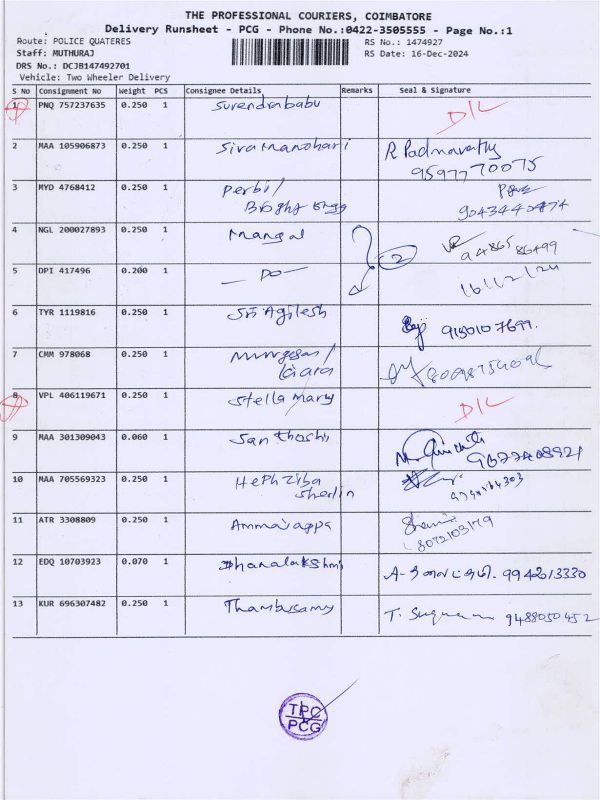 THE PROFESSIONAL COURIERS, COIMBATORE
Delivery Runsheet - PCG - Phone No.:0422-3505555 - Page No.:1
Route: POLICE QUATERES RS No.: 1474927
Staff: MUTHURAJ RS Date: 16-Dec-2024
DRS No.: DCJB147492701
Vehicle: Two Wheeler Delivery
S No Consignment No Weight PCS Consignee Details Remarks Seal & Signature
1 PNQ 757237635 0.250 1 Surendrababu D/L
2 MAA 105906873 0.250 1 Sivamanohari R Padmavathy
9597770075
3 MYD 4768412 0.250 1 Perbi/
4 NGL 200027893 0.250 1 Mangal 2 94865 86499
5 DPI 417496 0.200 1 — Do — 16/12/24
6 TYR 1119816 0.250 1 Sri Agilesh 9150107699.
7 CMM 978068 0.250 1 Murugesan/
8 VPL 406119671 0.250 1 Stella mary D/L
9 MAA 301309043 0.060 1 Santhosh
10 MAA 705569323 0.250 1 Hephziba
Sherlin
11 ATR 3308809 0.250 1 Ammaiappa
8072103179
12 EDQ 10703923 0.070 1 Dhanalakshmi 9942013330
13 KUR 696307482 0.250 1 Thambusamy T. 9488050452
TPC
PCG